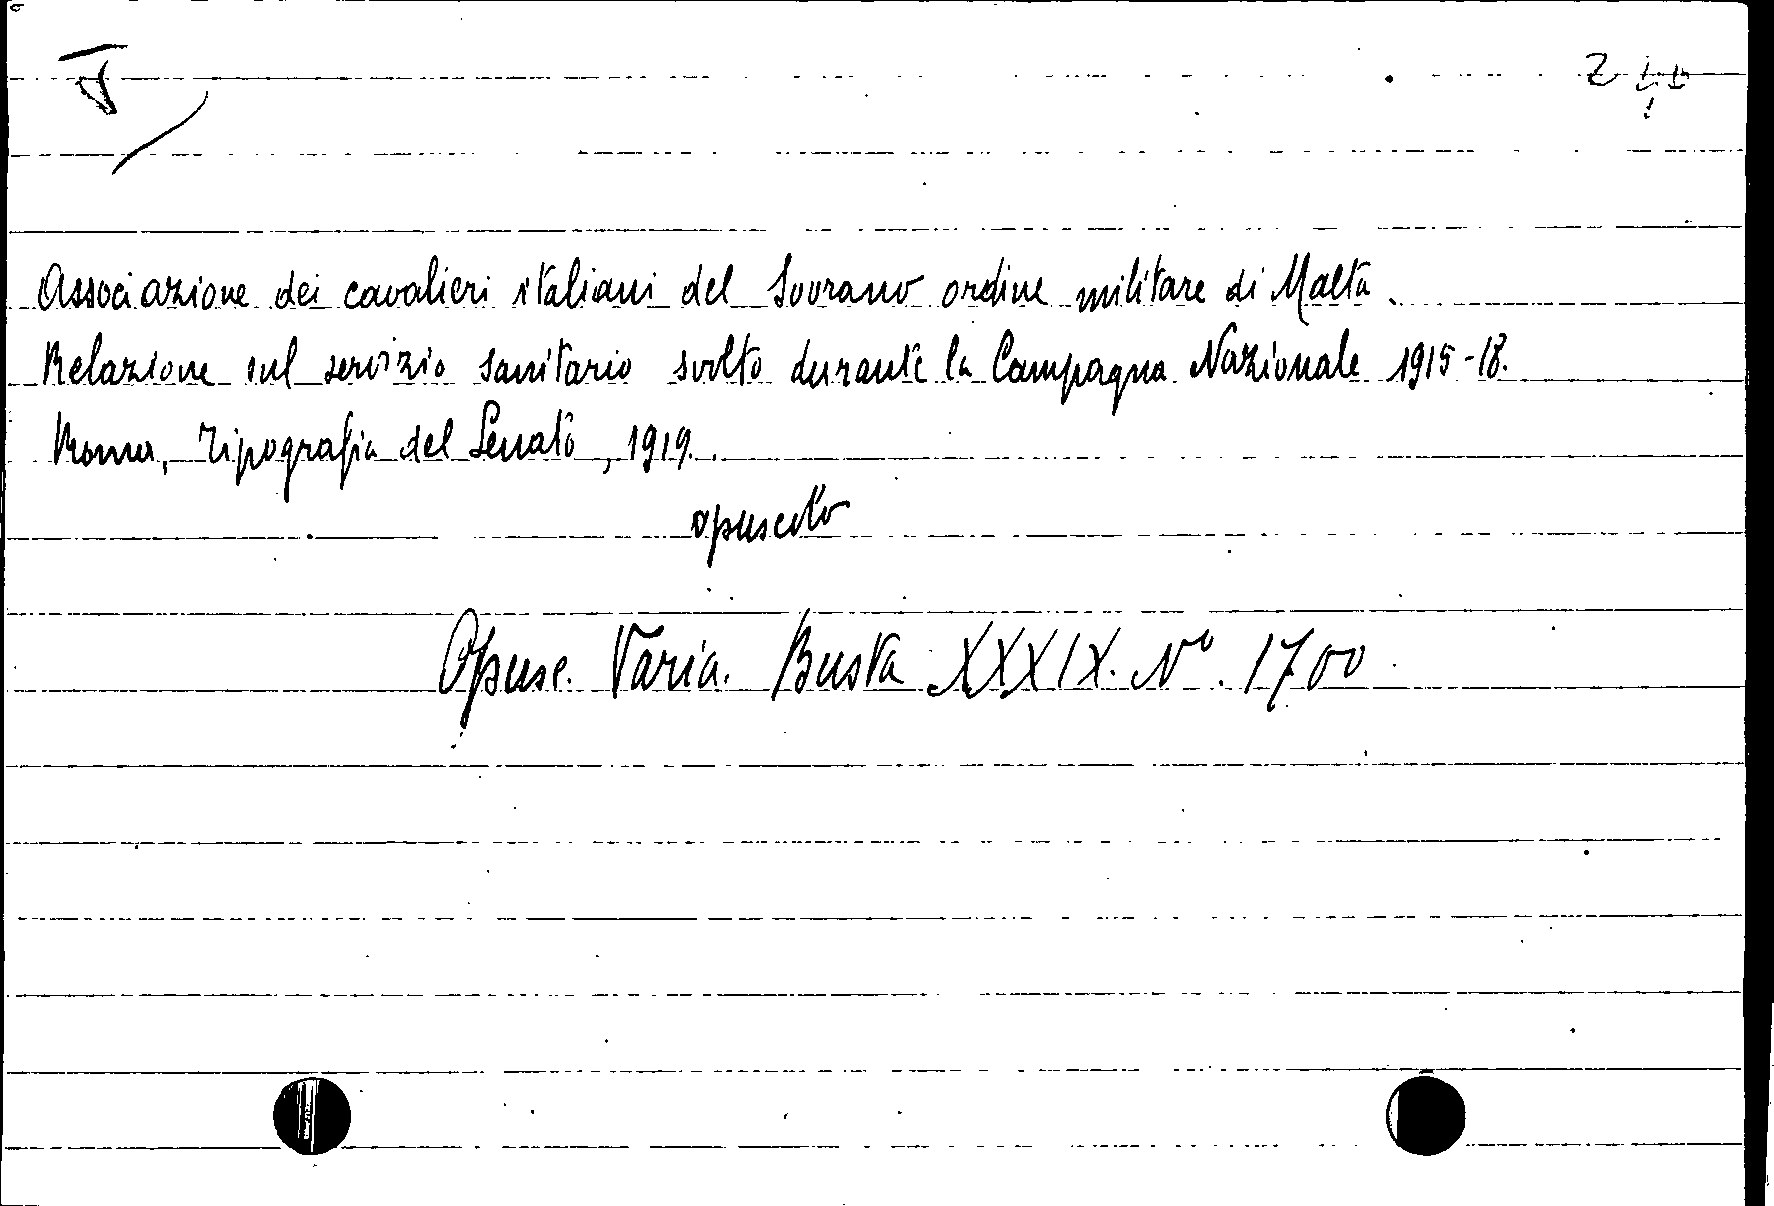 Associazione dei cavalieri italiani del Sovrano ordine militare di Malta.
Relazione sul servizio sanitario svolto durante la Campagna Nazionale 1915-18.
Roma, Tipografia del Senato, 1919.
opuscolo
Opusc. Varia. Busta XXXIX. No. 1700